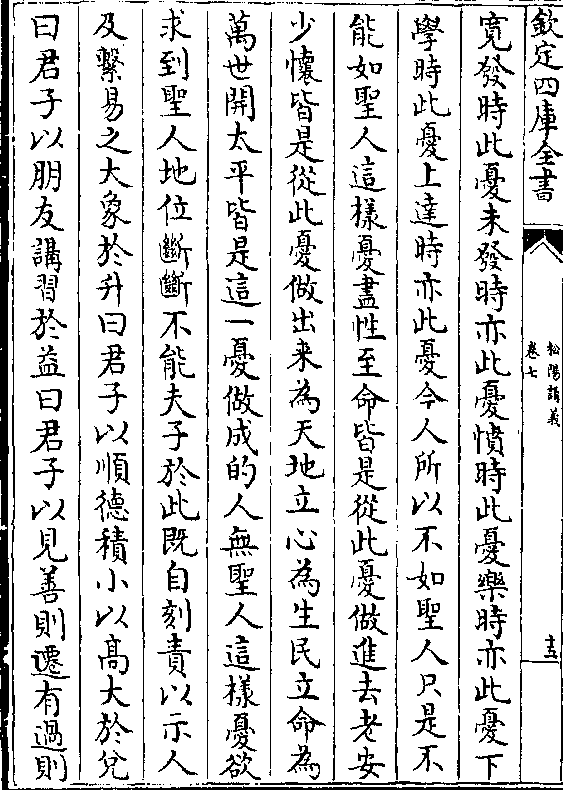 欽定四庫全書
松陽講義
卷七
十五
寛發時此憂未發時亦此憂憤時此憂樂時亦此憂下
學時此憂上達時亦此憂今人所以不如聖人只是不
能如聖人這様憂盡性至命皆是從此憂做進去老安
少懷皆是從此憂做出来為天地立心為生民立命為
萬世開太平皆是這一憂做成的人無聖人這様憂欲
求到聖人地位斷斷不能夫子於此既自刻責以示人
及繫易之大象於升曰君子以順德積小以髙大於兌
曰君子以朋友講習於益曰君子以見善則遷有過則